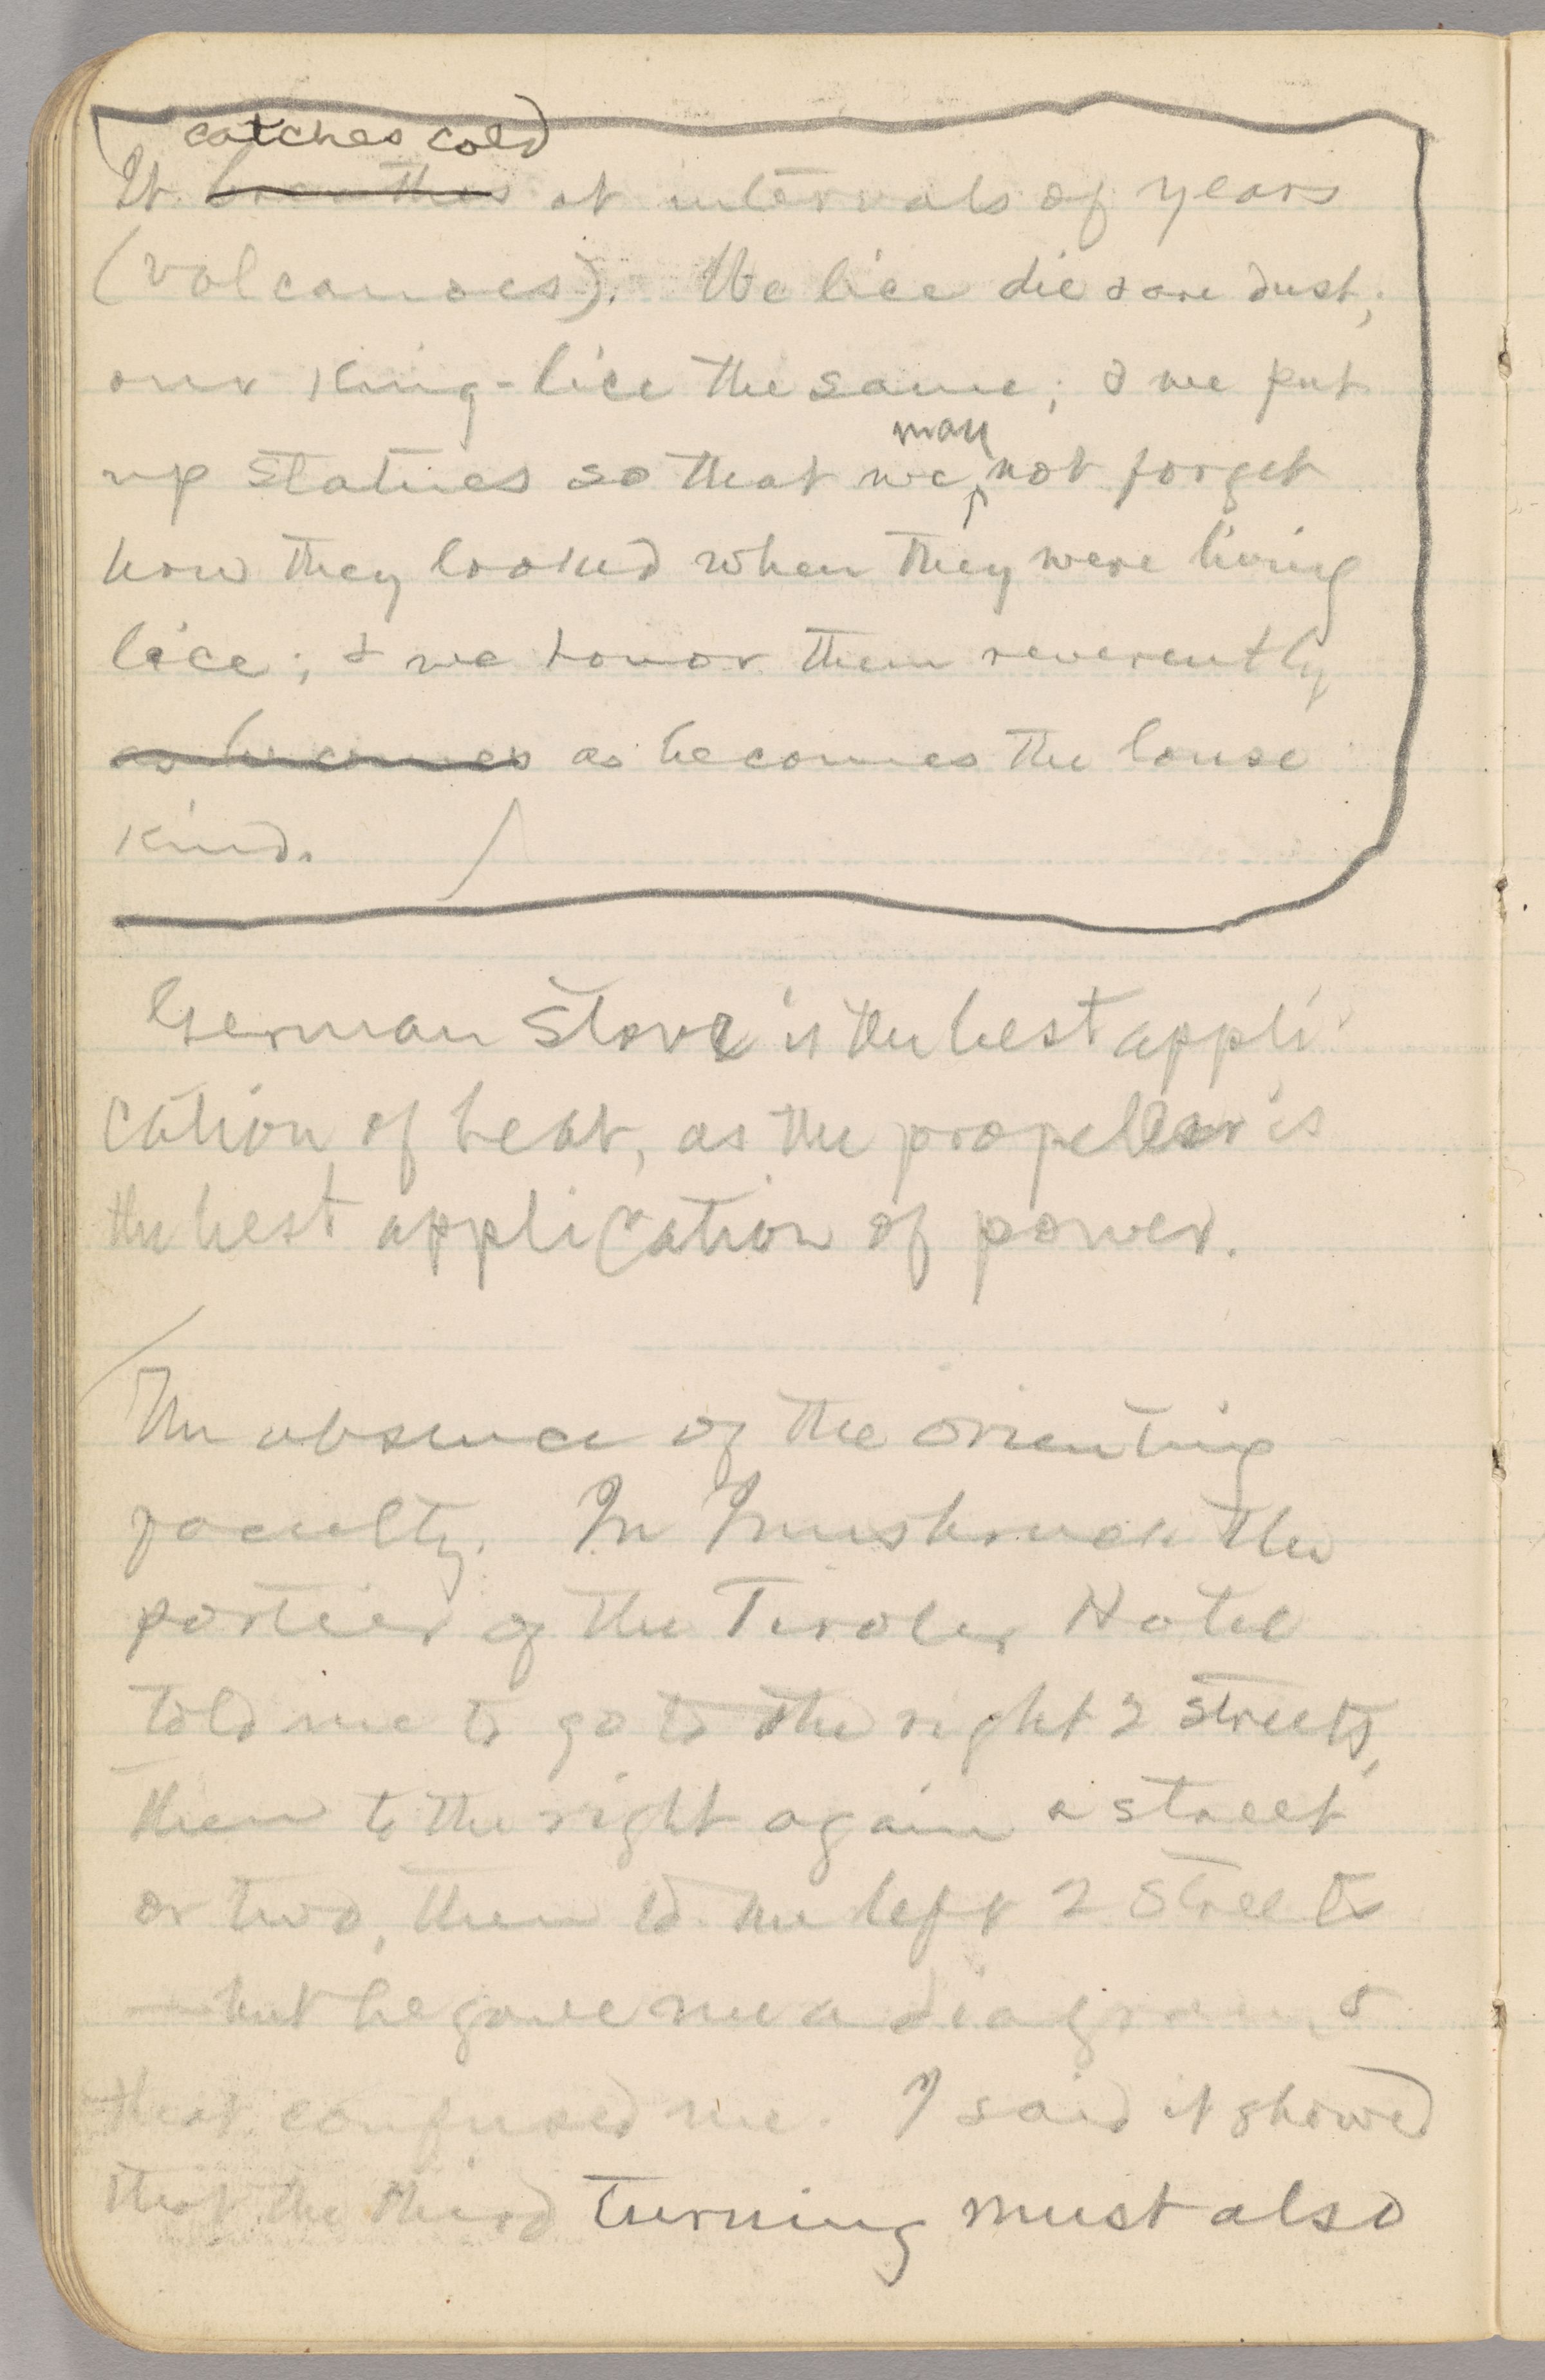 catches cold
It breathes at intervals of years
(volcanoes). We lice die & are dust;
our king-lice the same; & we put
may
up statues so that we not forget
how they looked when they were living
lice; & we honor them reverently
as becomes as becomes the louse
kind.
German Stove is the best appli-
cation of heat, as the propeller is
the best application of power.
The absence of the orienting
faculty. In Innsbruck the
portier of the Tiroler Hotel
told me to go to the right 2 streets,
then to the right again a street
or two, then to the left 2 streets
—but he gave me a diagram, &
that confused me. I said it showed
that the third turning must also